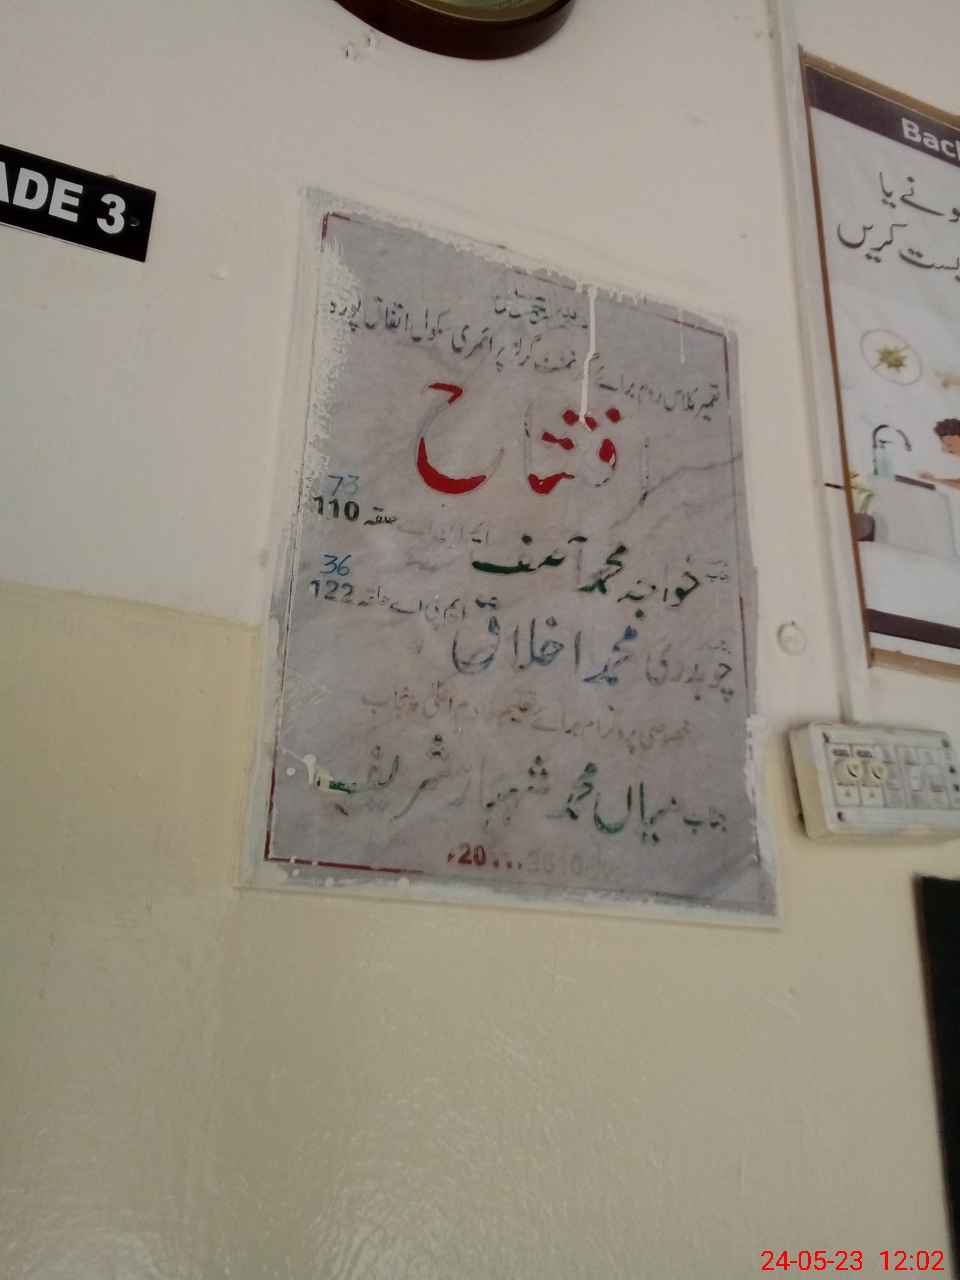 ADE 3
Bac
نے یا
کریں
تعمیر کلاس روم برائے گورنمنٹ گرلز پرائمری سکول اتفاق پورہ
افتتاح
73
خواجہ محمد آصف ایم این اے حلقہ 110
36
چوہدری محمد اخلاق ایم پی اے حلقہ 122
خصوصی پروگرام برائے تعلیم خادم اعلیٰ پنجاب
جناب میاں محمد شہباز شریف
20...
24-05-23 12:02